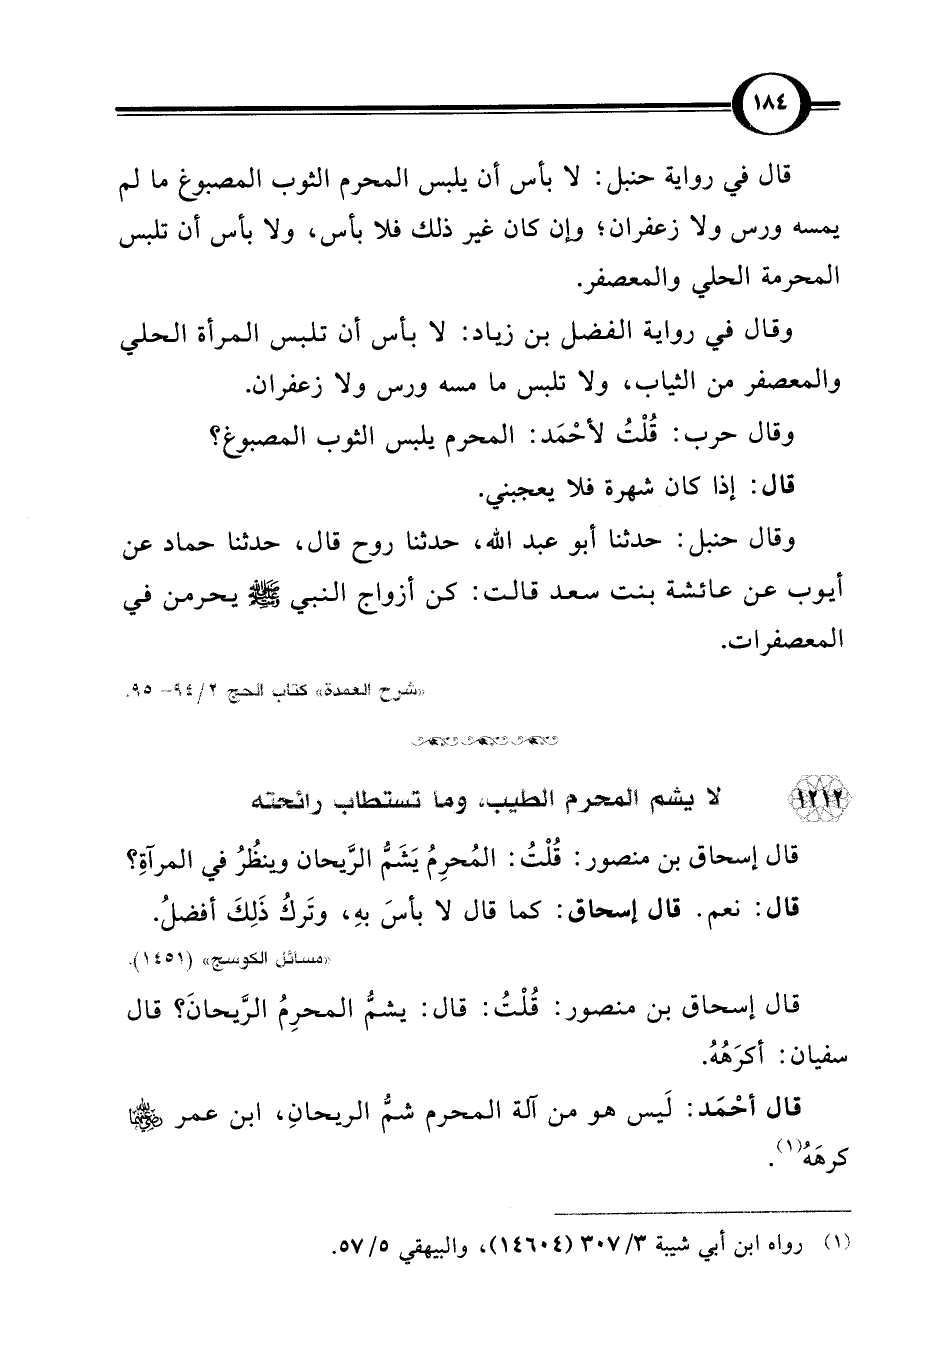 ١٨٤
قال في رواية حنبل: لا بأس أن يلبس المحرم الثوب المصبوغ ما لم
يمسه ورس ولا زعفران؛ وإن كان غير ذلك فلا بأس، ولا بأس أن تلبس
المحرمة الحلي والمعصفر.
وقال في رواية الفضل بن زياد: لا بأس أن تلبس المرأة الحلي
والمعصفر من الثياب، ولا تلبس ما مسه ورس ولا زعفران.
وقال حرب: قُلْتُ لأحْمَد: المحرم يلبس الثوب المصبوغ؟
قال: إذا كان شهرة فلا يعجبني.
وقال حنبل: حدثنا أبو عبد الله، حدثنا روح قال، حدثنا حماد عن
أيوب عن عائشة بنت سعد قالت: كن أزواج النبي ﷺ يحرمن في
المعصفرات.
«شرح العمدة» كتاب الحج ٢/ ٩٤- ٩٥.
١٢١٢ لا يشم المحرم الطيب، وما تستطاب رائحته
قال إسحاق بن منصور: قُلْتُ: المُحرِمُ يَشَمُّ الرَّيحان وينظُرُ في المرآةِ؟
قال: نعم. قال إسحاق: كما قال لا بأسَ بهِ، وتَركُ ذَلِكَ أفضلُ.
«مسائل الكوسج» (١٤٥١).
قال إسحاق بن منصور: قُلْتُ: قال: يشمُّ المحرِمُ الرَّيحانَ؟ قال
سفيان: أكرَهُهُ.
قال أحْمَد: لَيس هو من آلة المحرم شمُّ الريحانِ، ابن عمر رضي الله عنهما
كرهَهُ(١).
(١) رواه ابن أبي شيبة ٣/ ٣٠٧ (١٤٦٠٤)، والبيهقي ٥/ ٥٧.